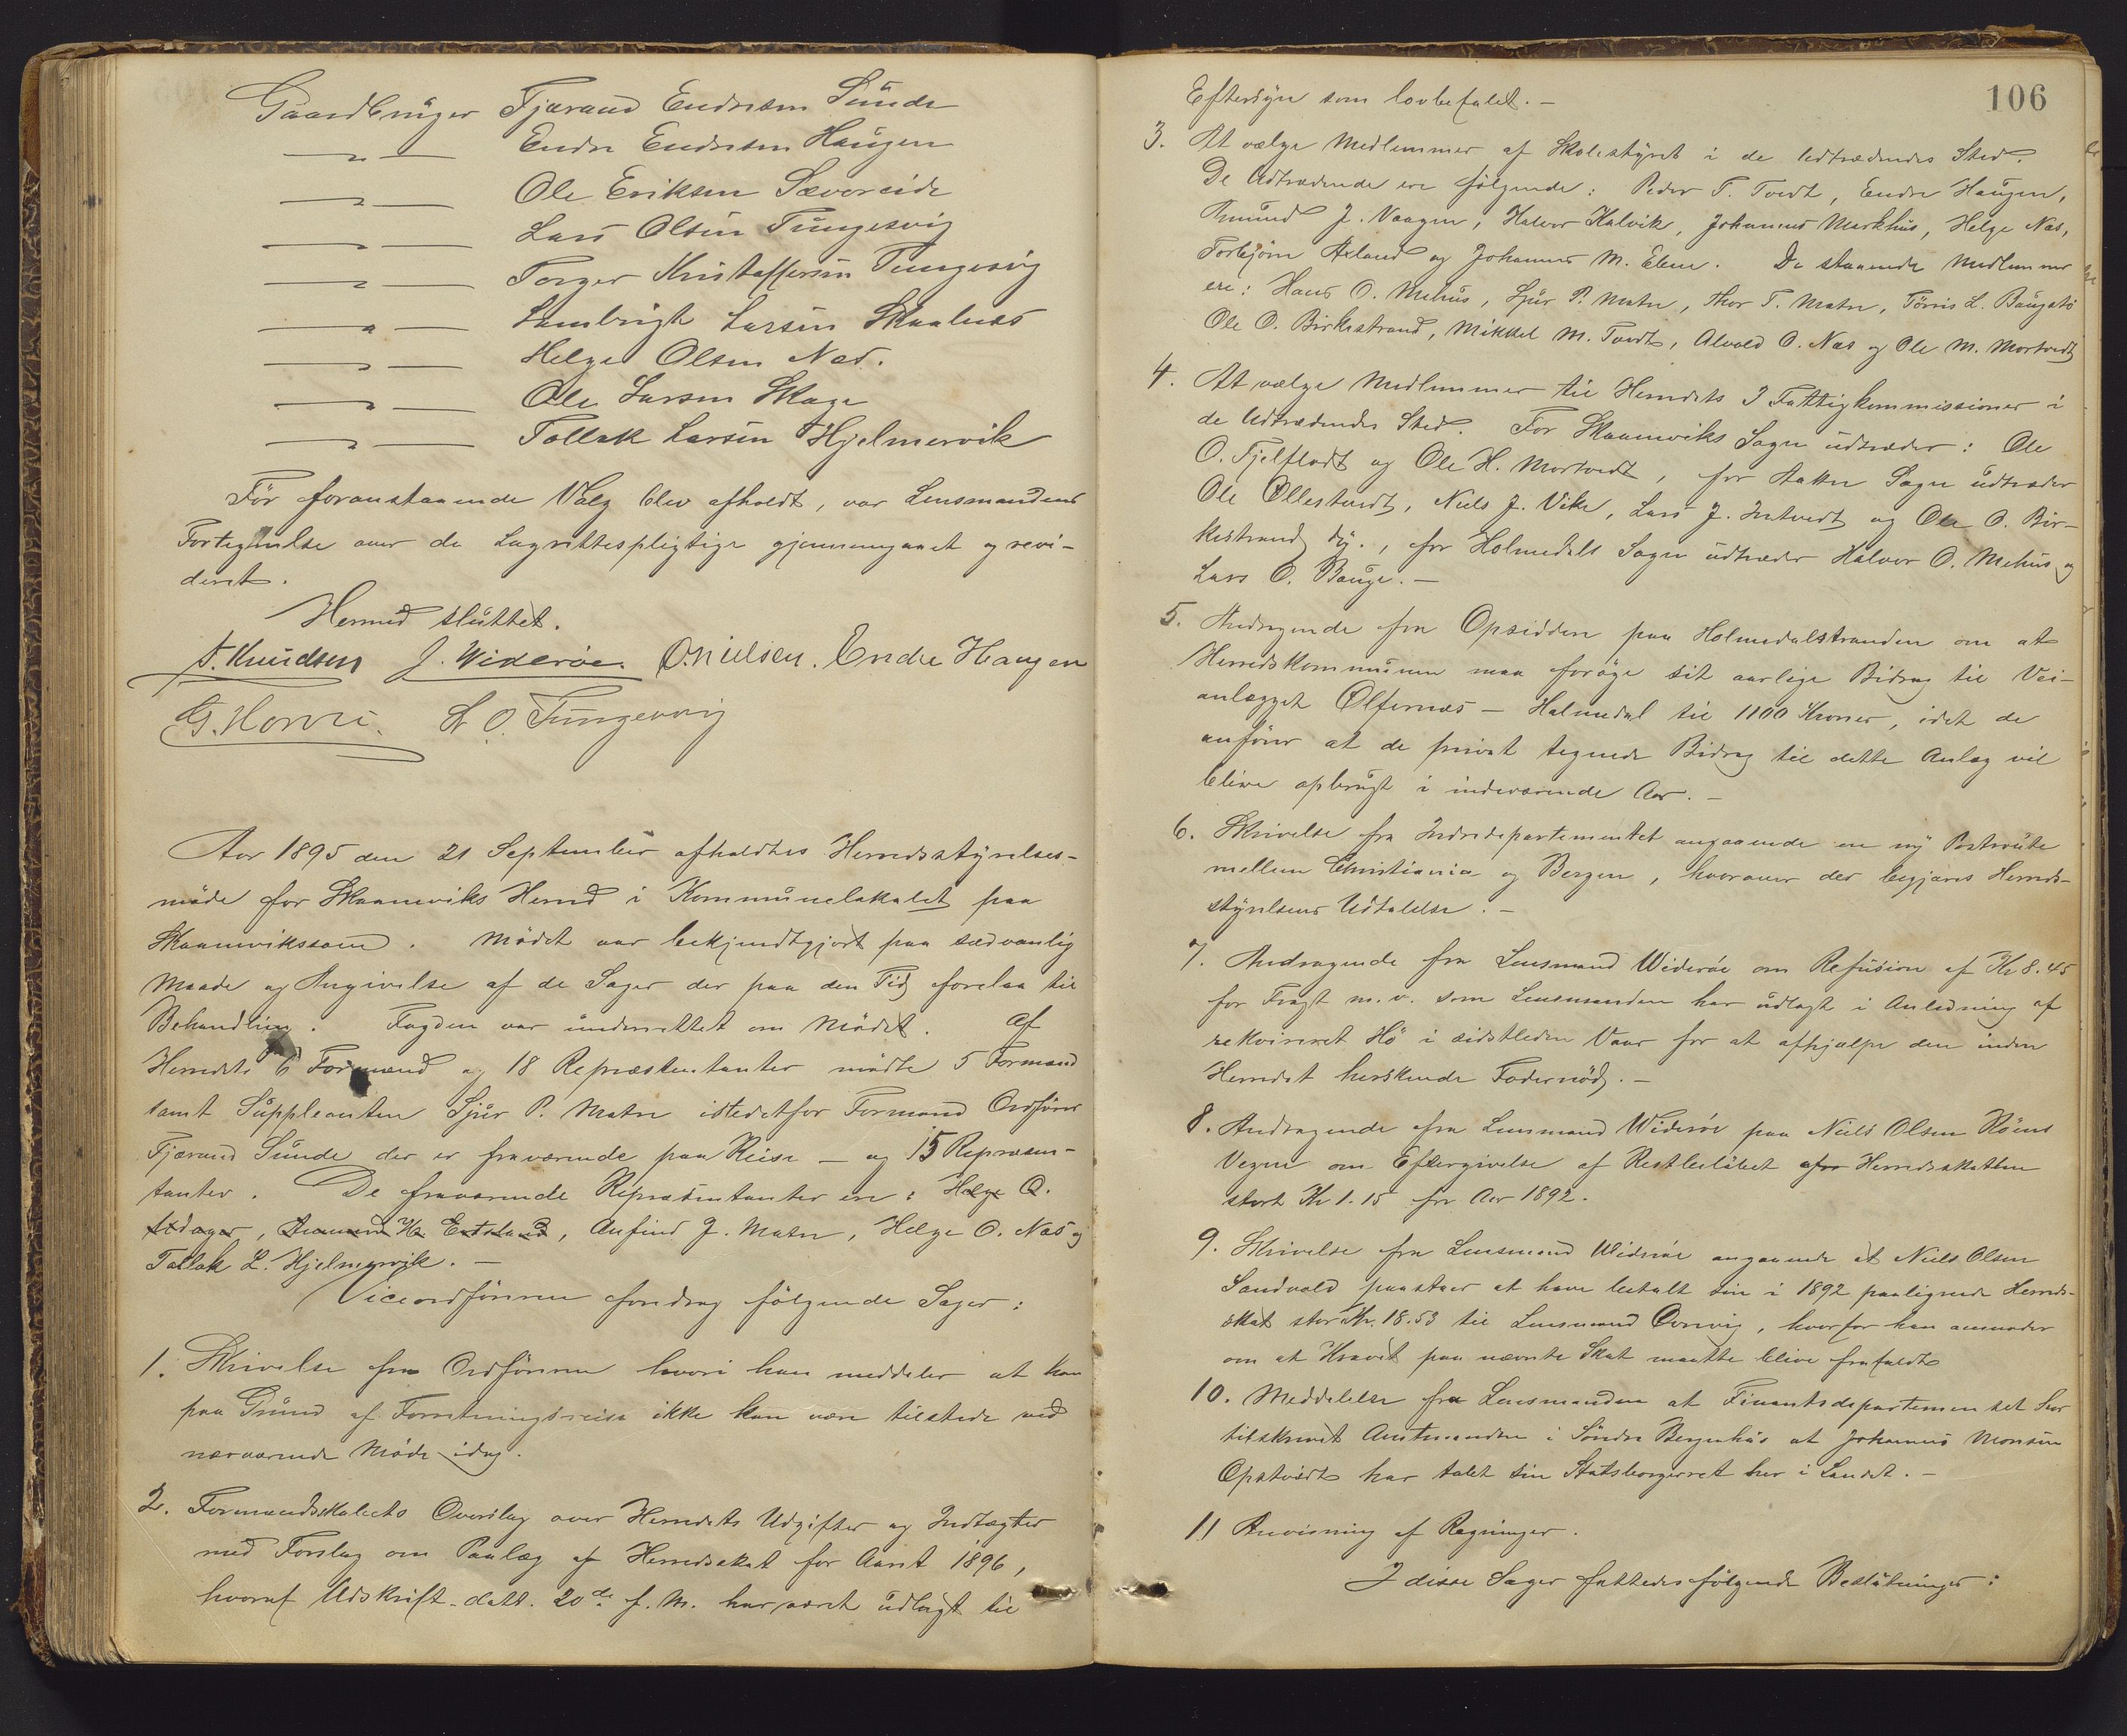 Gaardbruger Tjærand Endresen Sunde
—"— Endre Endresen Haugen
—"— Ole Eriksen Sævereide
—"— Lars Olsen Tungesvig
—"— Torger Kristoffersen Tungesvig
—"— Lambrigt Larsen Skaalnes
—"— Helge Olsen Næs.
—"— Ole Larsen Skage
—"— Tollak Larsen Hjelmervik
Før foranstaaende Valg blev afholdt, var Lensmandens
Fortegnelse over de Lagrettespligtige gjennemgaaet og revi-
deret.
Hermed sluttet.
A. Knudsen J. Widerøe. O. Nielsen. Endre Haugen
G. Horvei. L. O. Tungesvig
Aar 1895 den 21 September afholdtes Herredsstyrelses-
møde for Skaaneviks Herred i Kommunelokalet paa
Skaanevikssøen. Mødet var bekjendtgjort paa sædvanlig
Maade og Angivelse af de Sager der paa den Tid forelaa til
Behandling. Fogden var underrettet om Mødet. Af
Herredets 6 Formænd og 18 Repræsentanter mødte 5 Formænd
samt Suppleanten Sjur P. Matre istedetfor Formand Ordfører
Tjærand Sunde der er fraværende paa Reise — og 15 Repræsen-
tanter. De fraværende Repræsentanter ere: Helge O.
Axdager, Aamund H. Eetsland, Anfind J. Matre, Helge O. Næs og
Tollak L. Hjelmervik. —
Viceordføreren foredrog følgende Sager:
1. Skrivelse fra Ordføreren hvori han meddeler at han
paa Grund af Forretningsreise ikke kan være tilstede ved
nærværende Møde idag.
2. Formandsskabets Overslag over Herredets Udgifter og Indtægter
med Forslag om Paalæg af Herredsskat for Aaret 1896,
hvoraf Udskrift datt. 20de f. M. har været udlagt til
106
Eftersyn som lovbefalet. —
3. At vælge Medlemmer af Skolestyret i de Udtrædendes Sted.
De Udtrædende ere følgende: Peder T. Tvedt, Endre Haugen,
Amund J. Vaagen, Halvor Kalvik, Johannes Markhus, Helge Næs,
Torbjørn Axland og Johannes M. Ebne. De staaende Medlemmer
ere: Hans O. Mehus, Sjur P. Matre, Thor T. Matre, Tørris L. Baugstø
Ole O. Birkestrand, Mikkel M. Tvedt, Alvald O. Næs og Ole M. Mortvedt
4. At vælge Medlemmer til Herredets 3 Fattigkommissioner i
de Udtrædendes Sted. For Skaaneviks Sogn udtræder: Ole
O. Fjelflodt og Ole H. Mortvedt, for Aakre Sogn udtræder
Ole Øllestvedt, Niels J. Vike, Lars J. Intvedt og Ole O. Bir-
kestrand dy., for Holmedals Sogn udtræder Halvor O. Mehus og
Lars O. Bauge. —
5. Andragende fra Opsidden paa Holmedalstranden om at
Herredskommunen maa forøge sit aarlige Bidrag til Vei-
anlægget Ølfernæs — Holmedal til 1100 Kroner, idet de
anfører at de privat tegnede Bidrag til dette Anlæg vil
blive opbrugt i indeværende Aar. —
6. Skrivelse fra Indredepartementet angaaende en ny Postroute
mellem Christiania og Bergen, hvorover der begjæres Herreds-
styrelsens Udtalelse. —
7. Andragende fra Lensmand Widerøe om Refusion af Kr 8.45
for Fragt m.v. som Lensmanden har udlagt i Anledning af
rekvireret Hø i sidstleden Vaar for at afhjælpe den inden
Herredet herskende Fodernød. —
8. Andragende fra Lensmand Widerøe paa Niels Olsen Høines
Vegne om Eftergivelse af Restbeløbet af Herredsskatten
stort Kr 1.15 for Aar 1892.
9. Skrivelse fra Lensmand Widerøe angaaende at Niels Olsen
Sandvold paastaar at have betalt sin i 1892 paalignede Herreds-
skat stor Kr. 18.53 til Lensmand Qvervig, hvorfor han anmoder
om at Kravet paa nævnte Skat maatte blive frafaldt
10. Meddelelse fra Lensmanden at Finantsdepartementet har
tilskrevet Amtmanden i Søndre Bergenhus at Johannes Monsen
Opstvedt har tabt sin Statsborgerret her i Landet. —
11 Anvisning af Regninger.
I disse Sager fattedes følgende Beslutninger: